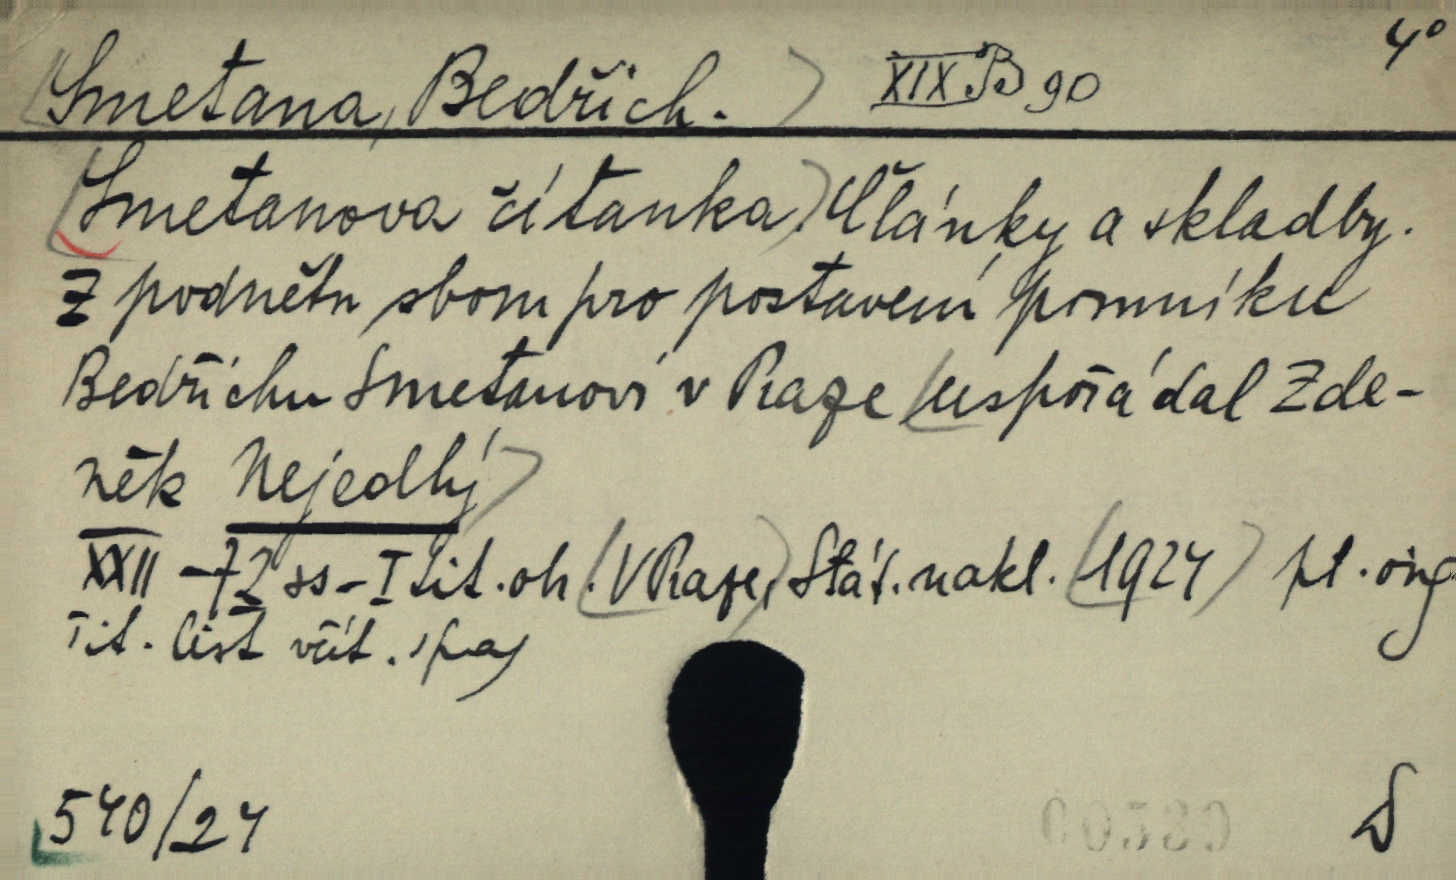 4°
Smetana, Bedřich. XIX B 90
Smetanova čítanka. Články a skladby.
Z podnětu sboru pro postavení pomníku
Bedřichu Smetanovi v Praze uspořádal Zde-
něk Nejedlý
XXII - 72 ss - I tit. ob. V Praze, Stát. nakl. 1924 pl. orig
Tit. list
540/24